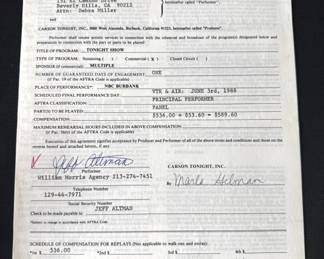 Beverly Hills, CA 90212
Attn: Debra Miller
hereinafter called "Performer".
CARSON TONIGHT, INC., 3000 West Alameda, Burbank, California 91523, hereinafter called "Producer".
Performer shall render artistic services in connection with the rehearsal and broadcast of the program(s) designated below and
preparation in connection with the part or parts to be played:
TITLE OF PROGRAM: TONIGHT SHOW
TYPE OF PROGRAM: Sustaining ( ) Commercial ( X ) Closed Circuit ( )
SPONSOR (if commercial): MULTIPLE
NUMBER OF GUARANTEED DAYS OF ENGAGEMENT: ONE
(if Par. 19 of the AFTRA Code is applicable)
PLACE OF PERFORMANCE*: NBC BURBANK
SCHEDULED FINAL PERFORMANCE DAY: VTR & AIR: JUNE 3rd, 1988
AFTRA CLASSIFICATION: PRINCIPAL PERFORMER
PART(S) TO BE PLAYED: PANEL
COMPENSATION: $536.00 + $53.60 = $589.60
MAXIMUM REHEARSAL HOURS INCLUDED IN ABOVE COMPENSATION:
Execution of this agreement signifies acceptance by Producer and Performer of all of the above terms and conditions and those on the
reverse hereof and attached hereto, if any.
Jeff Altman
Performer
CARSON TONIGHT, INC.
William Morris Agency 213-274-7451
Telephone Number
129-44-7971
Social Security Number
JEFF ALTMAN
Check to be made payable to
*Subject to change in accordance with AFTRA Code.
SCHEDULE OF COMPENSATION FOR REPLAYS (Not applicable to walk-ons and extras):
536.00